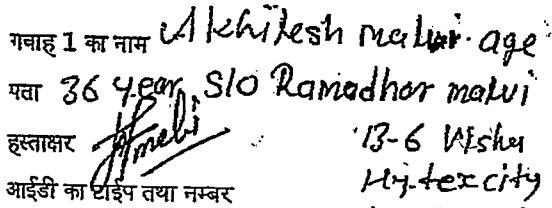 गवाह 1 का नाम Akhilesh malvi. age
पता 36 year S/O Ramadhar malvi
हस्ताक्षर 13-6
आईडी का टाईप तथा नम्बर Hy-tex city